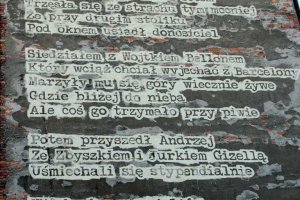 Trzęsła się ze strachu tym mocniej
Że przy drugim stoliku
Pod oknem usiadł donosiciel
Siedziałem z Wojtkiem Bellonem
Który wciąż chciał wyjechać z Barcelony
Marzyły mu się góry wiecznie żywe
Gdzie bliżej do nieba
Ale coś go trzymało przy piwie
Potem przyszedł Andrzej
Ze Zbyszkiem i Jurkiem Gizellą
Uśmiechali się stypendialnie